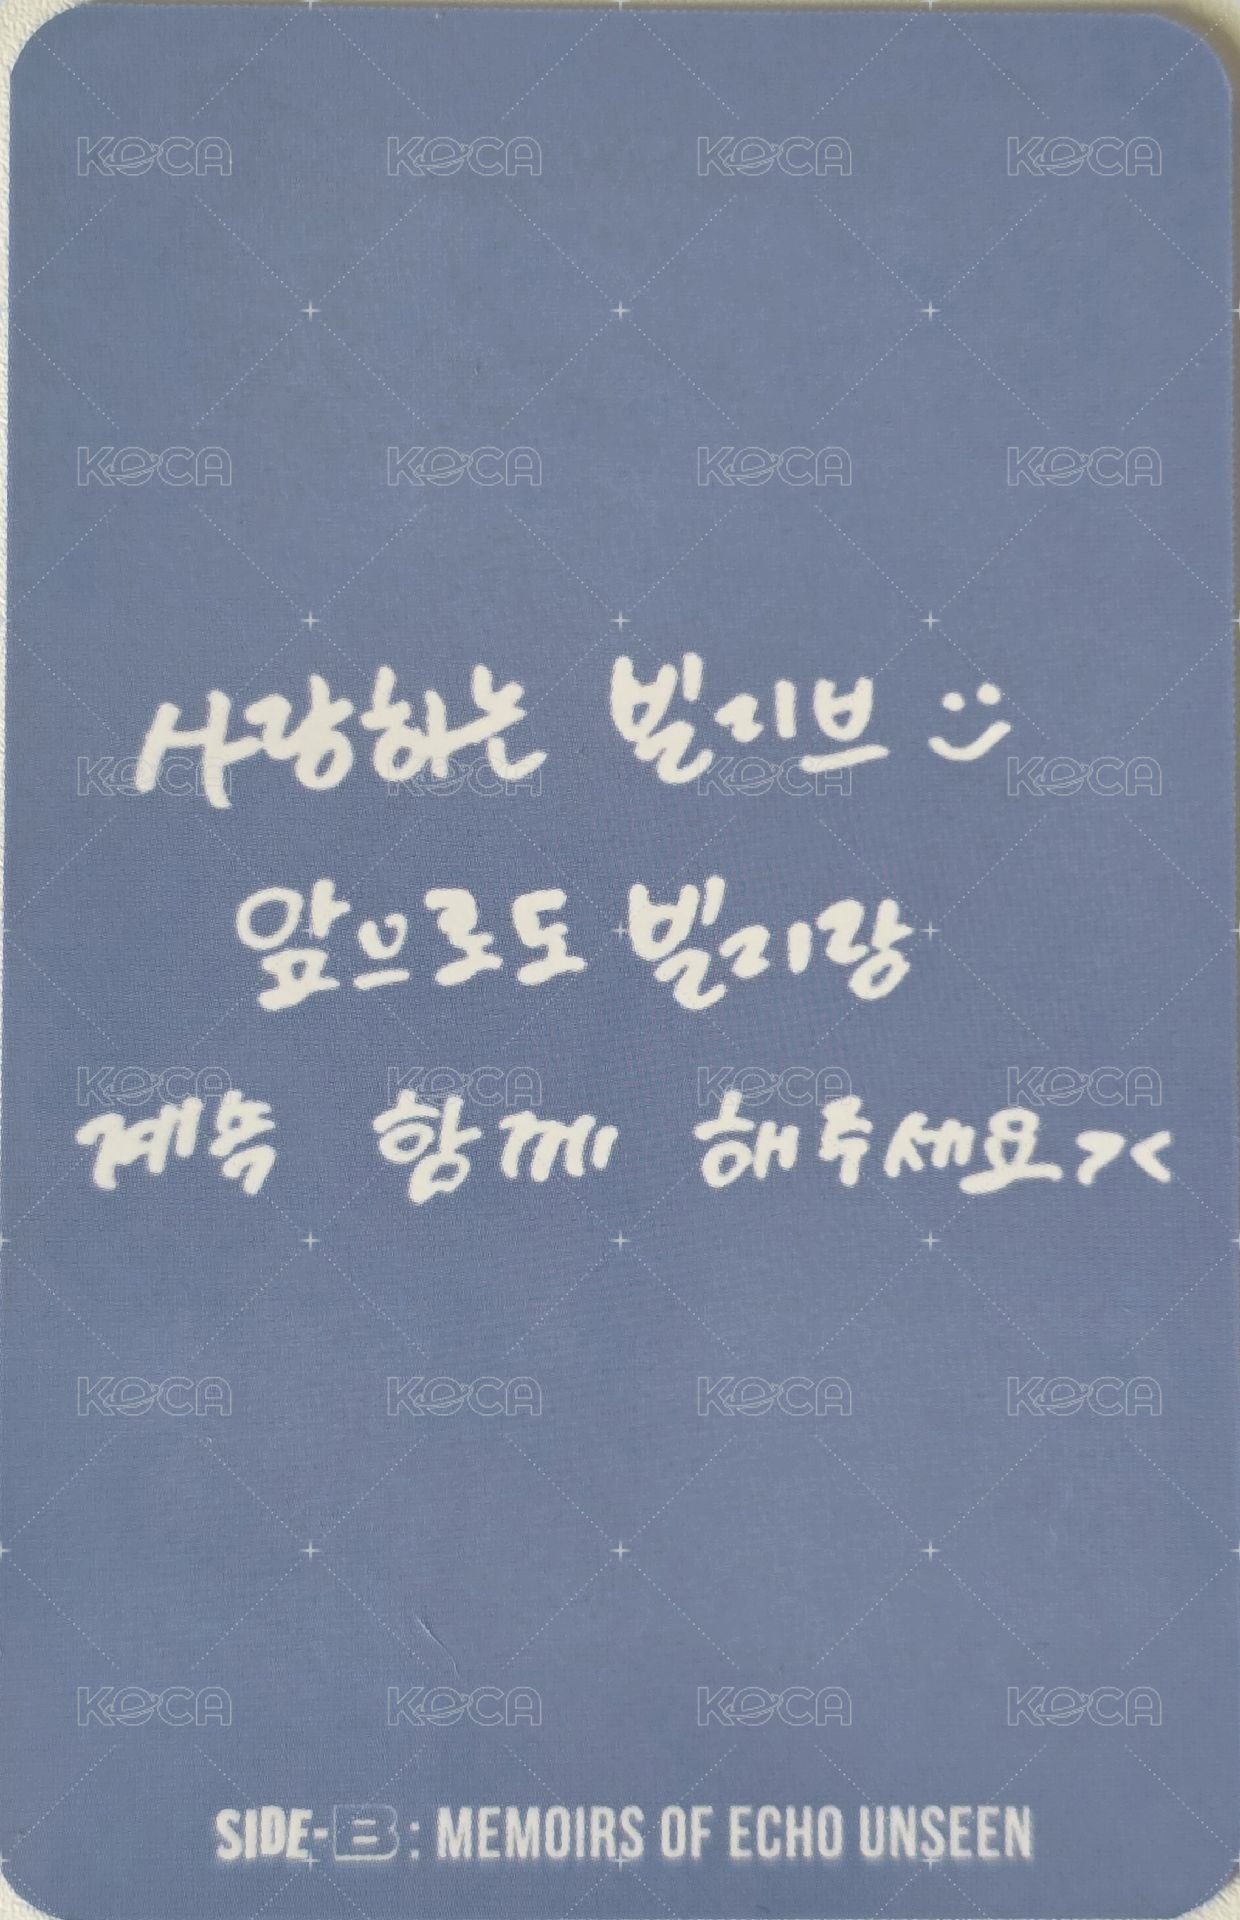 KOCA KOCA KOCA KOCA
KOCA KOCA KOCA KOCA
사랑하는 빌리브 :)
KOCA KOCA KOCA KOCA
앞으로도 빌리랑
KOCA KOCA KOCA KOCA
계속 함께 해주세요><
KOCA KOCA KOCA KOCA
KOCA KOCA KOCA KOCA
SIDE-B: MEMOIRS OF ECHO UNSEEN